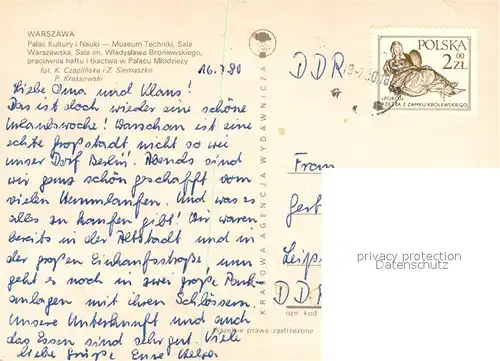 WARSZAWA
Pałac Kultury i Nauki — Muzeum Techniki, Sala
Warszawska, Sala im. Władysława Broniewskiego,
pracownia haftu i tkactwa w Pałacu Młodzieży
fot. K. Czaplińska i Z. Siemaszko
P. Krassowski
16.7.80
Liebe Oma und Klaus!
Das ist doch wieder eine schöne
Urlaubswoche! Warschau ist eine
echte Großstadt nicht so wie
unser Dorf Berlin! Abends sind
wir ganz schön geschafft vom
vielen Herumlaufen. Und was es
alles zu kaufen gibt! Wir waren
bereits in der Altstadt und in
der großen Einkaufsstraße. nun
geht es noch in zwei große Park-
anlagen mit ihren Schlössern.
Unsere Unterkunft und auch
das Essen sind sehr gut. Viele
liebe Grüße Eure
KRAJOWA AGENCJA WYDAWNICZA
Wszelkie prawa zastrzeżone
POLSKA
2 00 ZŁ
"POKÓJ"
RZEŹBA Z ZAMKU KRÓLEWSKIEGO
DDR
Frau
Gert
Leip
DDR
ozn. kod
privacy protection
Datenschutz